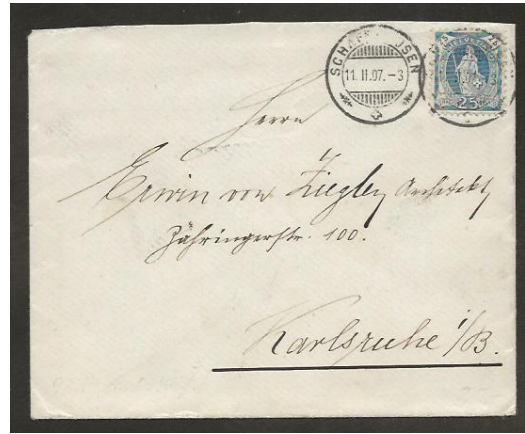 SCHAFFHAUSEN
11. II. 07. – 3
HELVETIA
25
Herrn
Erwin von Ziegler, Architekt,
Zähringerstr. 100.
Karlsruhe i/B.